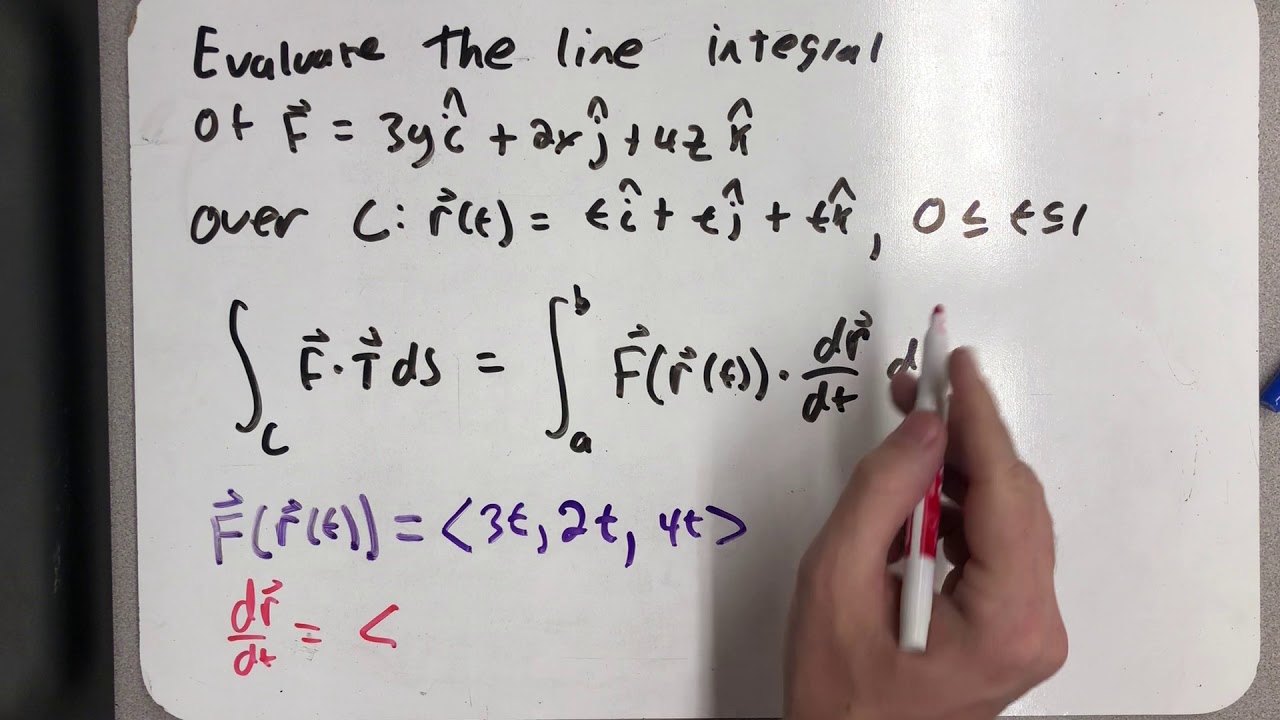 Evaluate the line integral
of F⃗ = 3y î + 2x ĵ + 4z k̂
over C: r⃗(t) = t î + t ĵ + t k̂, 0 ≤ t ≤ 1
∫_C F⃗ · T⃗ ds = ∫_a^b F⃗(r⃗(t)) · dr⃗/dt d
F⃗(r⃗(t)) = <3t, 2t, 4t>
dr⃗/dt = <